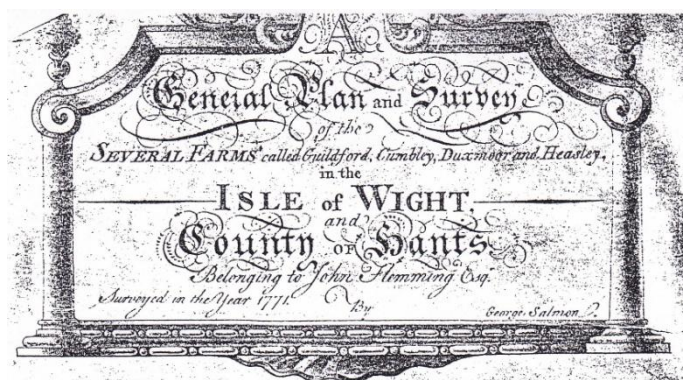 A
General Plan and Survey
of the
SEVERAL FARMS called Guildford, Cumbley, Duxmoor and Heasley,
in the
ISLE of WIGHT
and
County OF Hants
Belonging to John Flemming Esqr.
Surveyed in the Year 1771. By George Salmon